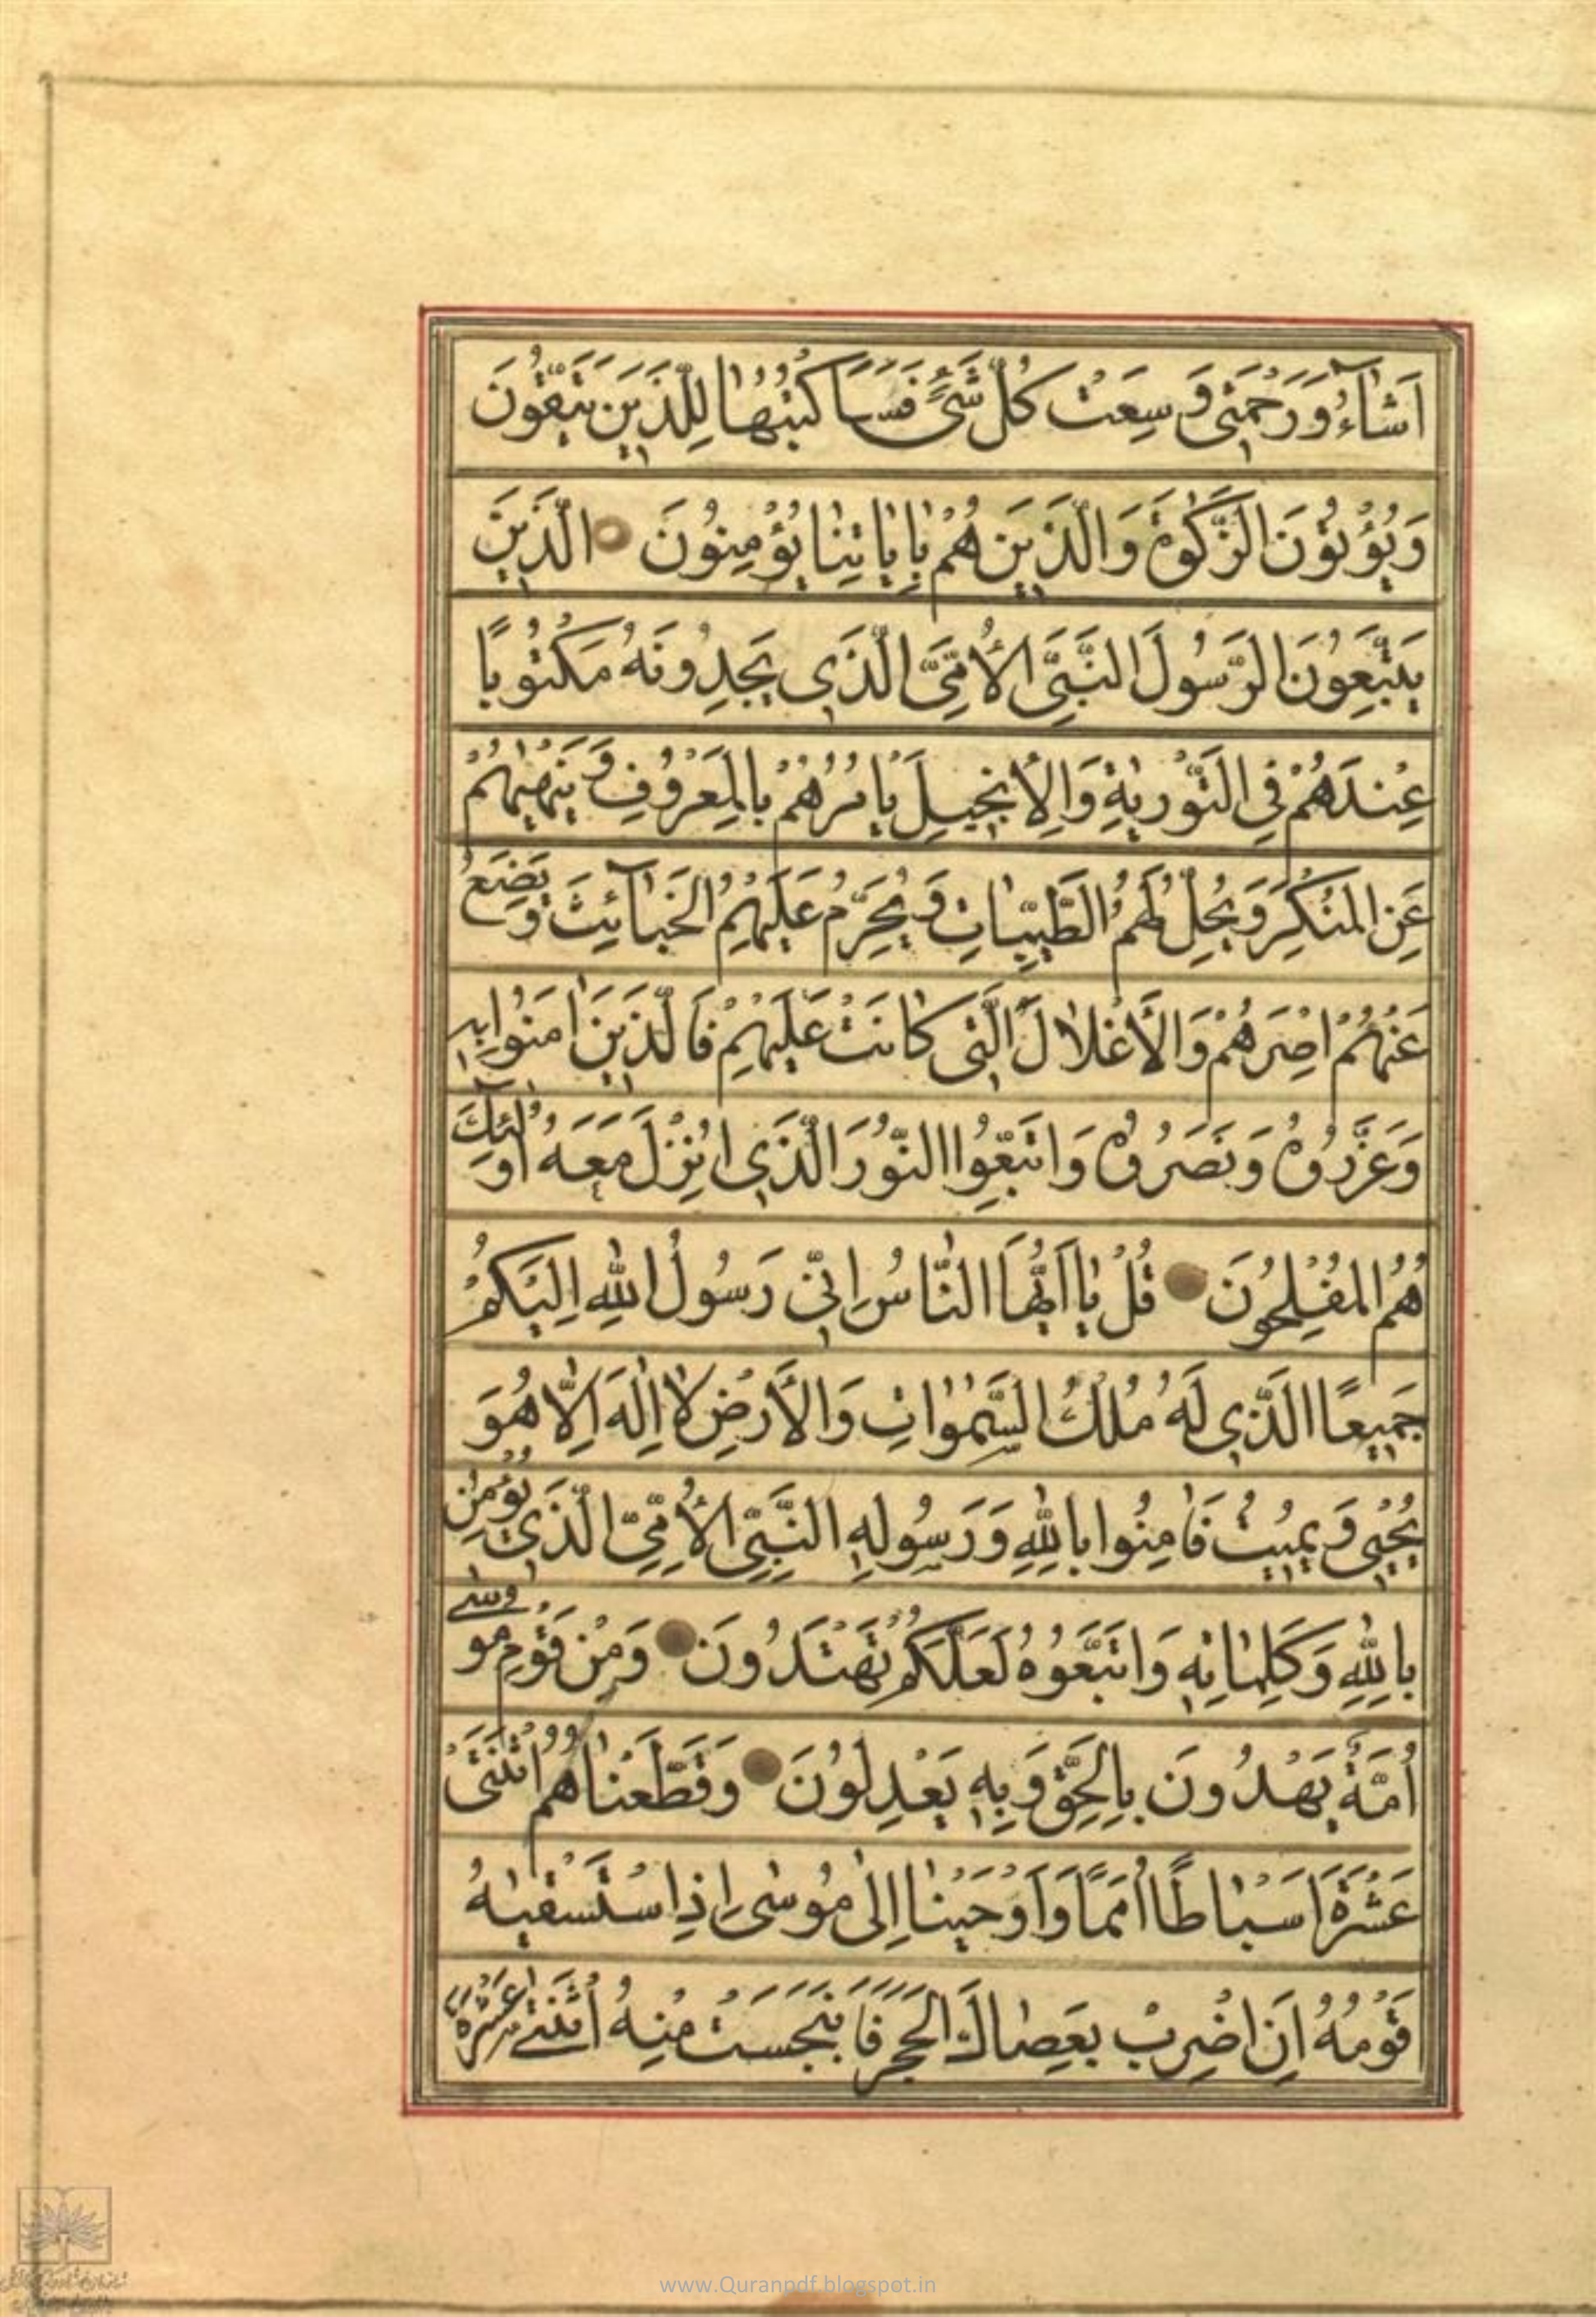 اَشَاءُ وَرَحْمَتِی وَسِعَتْ كُلَّ شَیْءٍ فَسَاَكْتُبُهَا لِلَّذِینَ یَتَّقُونَ
وَیُؤْتُونَ الزَّكٰوةَ وَالَّذِینَ هُمْ بِاٰیَاتِنَا یُؤْمِنُونَ الَّذِینَ
یَتَّبِعُونَ الرَّسُولَ النَّبِیَّ الْاُمِّیَّ الَّذِی یَجِدُونَهُ مَكْتُوبًا
عِنْدَهُمْ فِی التَّوْرٰیةِ وَالْاِنْجِیلِ یَاْمُرُهُمْ بِالْمَعْرُوفِ وَیَنْهٰیهُمْ
عَنِ الْمُنْكَرِ وَیُحِلُّ لَهُمُ الطَّیِّبَاتِ وَیُحَرِّمُ عَلَیْهِمُ الْخَبَآئِثَ وَیَضَعُ
عَنْهُمْ اِصْرَهُمْ وَالْاَغْلَالَ الَّتِی كَانَتْ عَلَیْهِمْ فَالَّذِینَ اٰمَنُوا بِهِ
وَعَزَّرُوهُ وَنَصَرُوهُ وَاتَّبَعُوا النُّورَ الَّذِی اُنْزِلَ مَعَهُ اُولٰٓئِكَ
هُمُ الْمُفْلِحُونَ قُلْ یَا اَیُّهَا النَّاسُ اِنِّی رَسُولُ اللهِ اِلَیْكُمْ
جَمِیعًا الَّذِی لَهُ مُلْكُ السَّمٰوَاتِ وَالْاَرْضِ لَا اِلٰهَ اِلَّا هُوَ
یُحْیِی وَیُمِیتُ فَاٰمِنُوا بِاللهِ وَرَسُولِهِ النَّبِیِّ الْاُمِّیِّ الَّذِی یُؤْمِنُ
بِاللهِ وَكَلِمَاتِهِ وَاتَّبِعُوهُ لَعَلَّكُمْ تَهْتَدُونَ وَمِنْ قَوْمِ مُوسٰی
اُمَّةٌ یَهْدُونَ بِالْحَقِّ وَبِهِ یَعْدِلُونَ وَقَطَّعْنَاهُمُ اثْنَتَیْ
عَشْرَةَ اَسْبَاطًا اُمَمًا وَاَوْحَیْنَا اِلٰی مُوسٰی اِذِ اسْتَسْقٰیهُ
قَوْمُهُ اَنِ اضْرِبْ بِعَصَاكَ الْحَجَرَ فَانْبَجَسَتْ مِنْهُ اثْنَتَا عَشْرَةَ
www.Quranpdf.blogspot.in